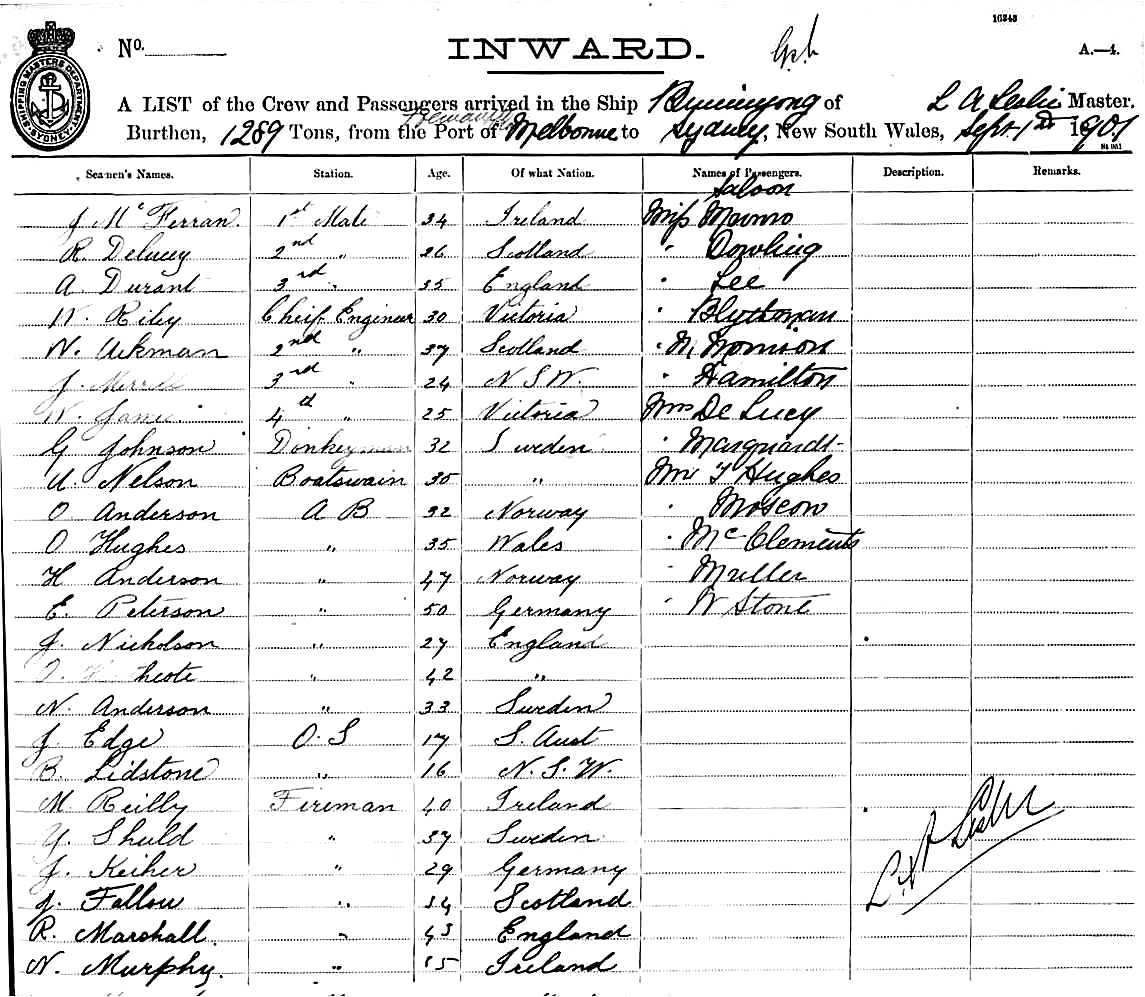 16343
No. INWARD. A.—4.
SHIPPING MASTERS DEPARTMENT SYDNEY
A LIST of the Crew and Passengers arrived in the Ship Buninyong of L A Leslie Master.
Burthen, 1289 Tons, from the Port of Melbourne to Sydney, New South Wales, Sept 1st 1901
Seamen's Names. Station. Age. Of what Nation. Names of Passengers. Description. Remarks.
Saloon
J. McFerran. 1st Mate 34 Ireland Miss Munro
R. Delucey 2nd " 26 Scotland " Dowling
A. Durant 3rd " 35 England " Lee
W. Riley Cheif Engineer 30 Victoria "
W. Aekman 2nd " 37 Scotland " M. Morrison
J. 3rd " 24 N S W. " Hamilton
W. 4th " 25 Victoria Mrs De Lucy
G Johnson Donkeyman 32 Sweden " Marquardt
U. Nelson Boatswain 30 " Mr T Hughes
O Anderson A B 32 Norway " Moscow
O Hughes " 35 Wales " McClements
H Anderson " 47 Norway " Muller
E. Peterson " 50 Germany " W Stone
J. Nicholson " 27 England
" 42 "
N. Anderson " 33 Sweden
J. Edge O. S 17 S. Aust
B. Lidstone " 16 N. S. W.
M. Reilly Fireman 40 Ireland
Y. Shuld " 37 Sweden
J. Keiher " 29 Germany
J. Fallow " 34 Scotland
R. Marshall. " 43 England
N. Murphy. " Ireland
L. A Leslie